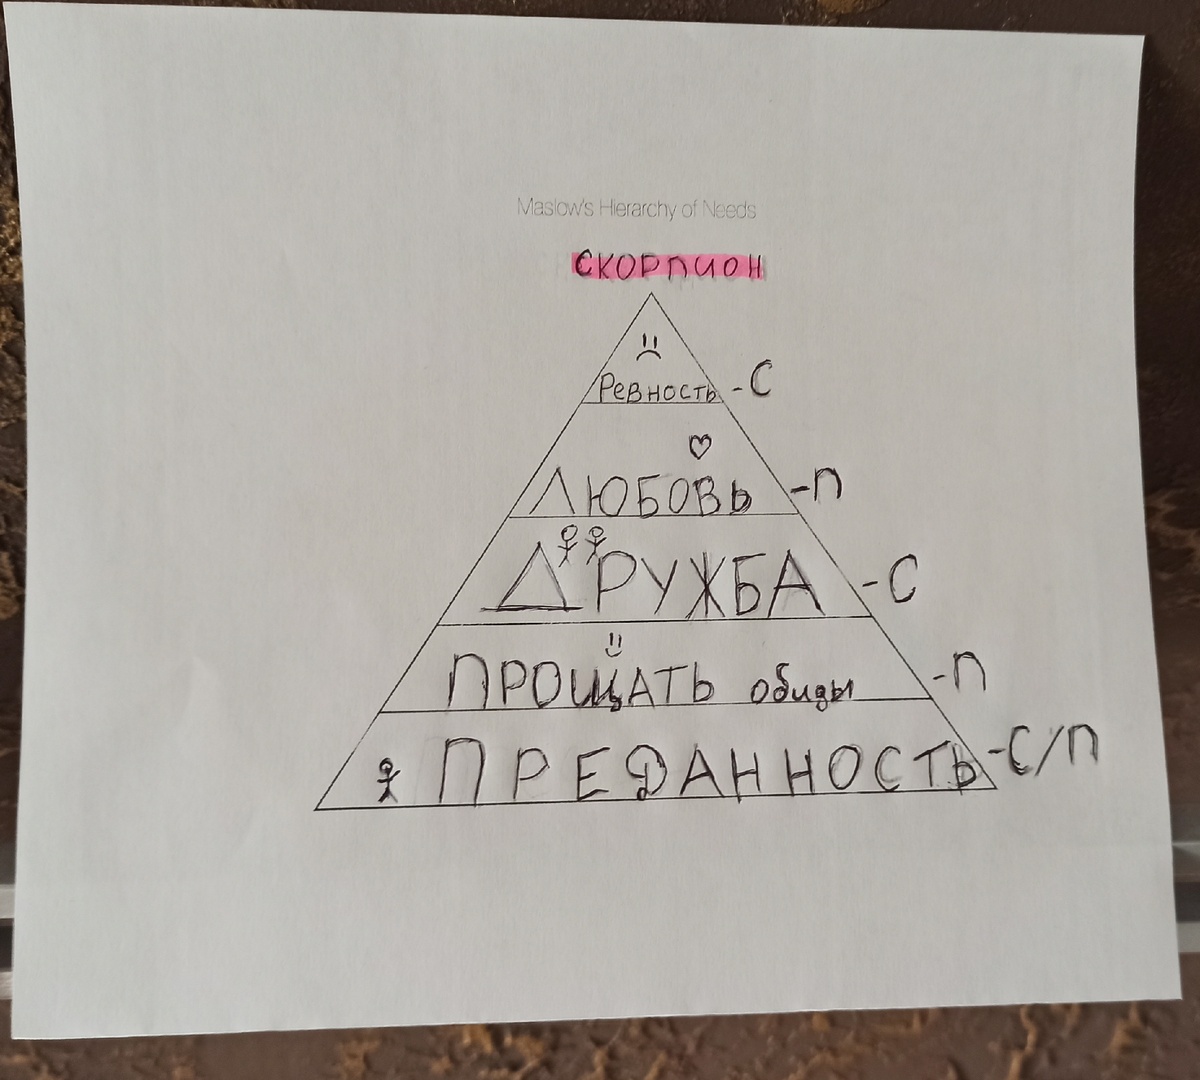 Maslow's Hierarchy of Needs
СКОРПИОН
Ревность - С
ЛЮБОВЬ - П
ДРУЖБА - С
ПРОЩАТЬ обиды - П
ПРЕДАННОСТЬ - С/П